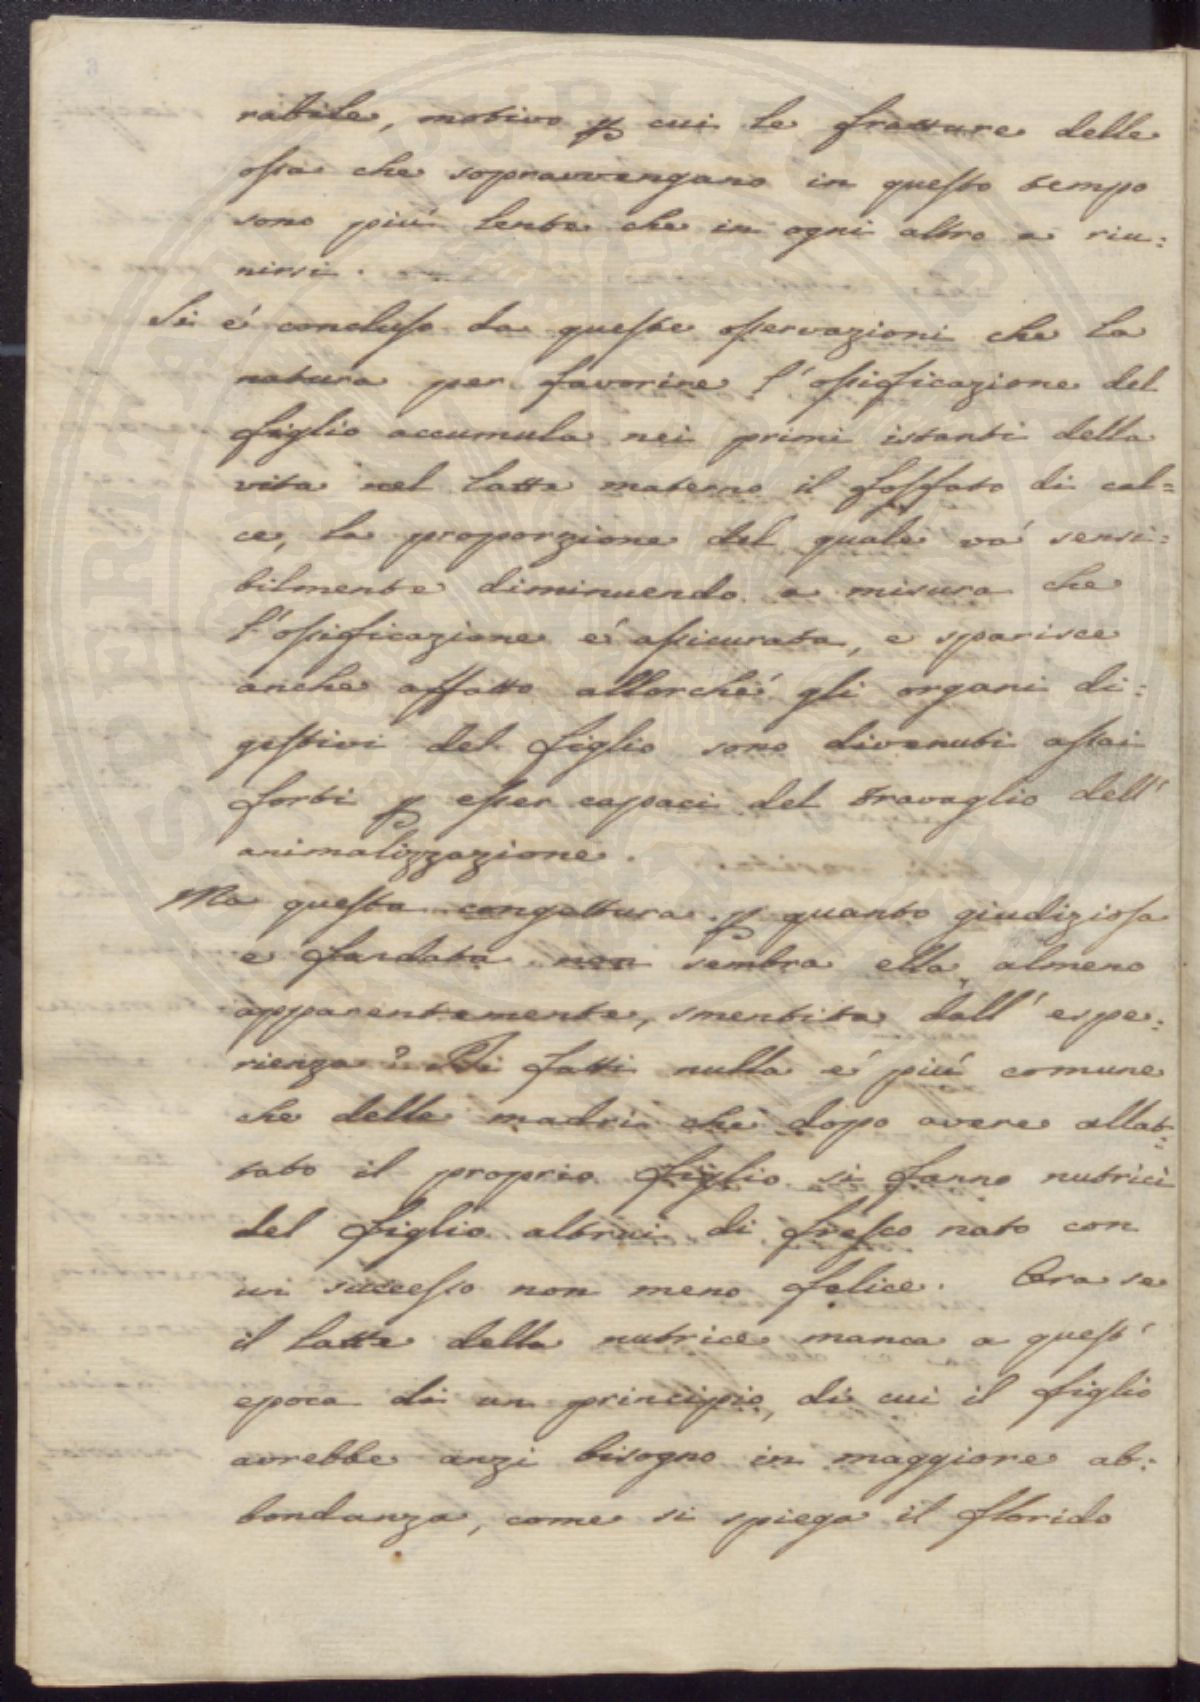 rabile, motivo p cui le fratture delle
ossa che sopravvengano in questo tempo
sono piú lente che in ogni altro a riu:
nirsi.
Si é concluso da queste osservazioni che la
natura per favorire l'ossificazione del
figlio accumula nei primi istanti della
vita nel latte materno il fosfato di cal:
ce, la proporzione del quale vá sensi:
bilmente diminuendo a misura che
l'ossificazione é assicurata, e sparisce
anche affatto allorché gli organi di:
gestivi del figlio sono divenuti assai
forti p esser capaci del travaglio dell'
animalizzazione.
Ma questa congettura p quanto giudiziosa
e fondata non sembra ella, almeno
apparentemente, smentita dall' espe:
rienza? Di fatti nulla é piú comune
che delle madri che dopo avere allat:
tato il proprio figlio si fanno nutrici
del figlio altrui di fresco nato con
un successo non meno felice. Ora se
il latte della nutrice manca a quest'
epoca di un principio, di cui il figlio
avrebbe anzi bisogno in maggiore ab:
bondanza, come si spiega il florido